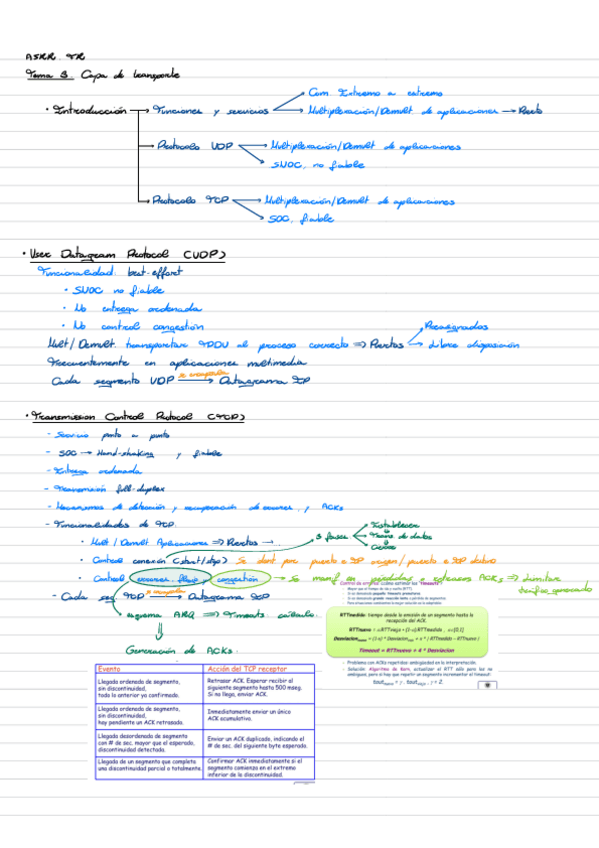 ASRR. TR
Tema 3. Capa de transporte
· Introducción → Funciones y servicios → Com. Extremo a extremo
→ Multiplexación/Demult. de aplicaciones → Puerto
→ Protocolo UDP → Multiplexación/Demult. de aplicaciones
→ SNOC, no fiable
→ Protocolo TCP → Multiplexación/Demult. de aplicaciones
→ SOC, fiable
· User Datagram Protocol (UDP)
Funcionalidad: best-effort
· SNOC no fiable
· No entrega ordenada
· No control congestión
Mult/Demult. transportar TPDU al proceso correcto ⇒ Puertos → Preasignados
→ Libre disposición
Frecuentemente en aplicaciones multimedia
Cada segmento UDP → se encapsula Datagrama IP
· Transmission Control Protocol (TCP)
- Servicio punto a punto
- SOC → Hand-shaking y fiable
- Entrega ordenada
- Transmisión full-duplex
- Mecanismos de detección y recuperación de errores, y ACKs
- Funcionalidades de TCP:
· Mult/Demult. Aplicaciones ⇒ Puertos → 3 fases → Establecer
→ Trans de datos
→ Cierre
· Control conexión (start/stop) Se dan por puerto e IP origen/puerto e IP destino
· Control errores, flujo y congestión → Se manif en pérdidas o retrasos ACKs ⇒ Limitar tráfico generado
- Cada seg TCP → se encapsula Datagrama IP
esquema ARQ ⇒ Timeouts. cálculo:
Control de errores: ¿cómo estimar los "timeouts"?
RTTmedido: tiempo desde la emisión de un segmento hasta la recepción del ACK.
Timeout = RTTnuevo + 4 * Desviacion
- Problema con ACKs repetidos: ambigüedad en la interpretación.
- Solución: Algoritmo de Karn, actualizar el RTT sólo para los no ambiguos, pero si hay que repetir un segmento incrementar el timeout:
Generación de ACKs:
Evento | Acción del TCP receptor
Llegada ordenada de segmento, sin discontinuidad, todo lo anterior ya confirmado. | Retrasar ACK. Esperar recibir al siguiente segmento hasta 500 mseg. Si no llega, enviar ACK.
Llegada ordenada de segmento, sin discontinuidad, hay pendiente un ACK retrasado. | Inmediatamente enviar un único ACK acumulativo.
Llegada desordenada de segmento con # de sec. mayor que el esperado, discontinuidad detectada. | Enviar un ACK duplicado, indicando el # de sec. del siguiente byte esperado.
Llegada de un segmento que completa una discontinuidad parcial o totalmente. | Confirmar ACK inmediatamente si el segmento comienza en el extremo inferior de la discontinuidad.